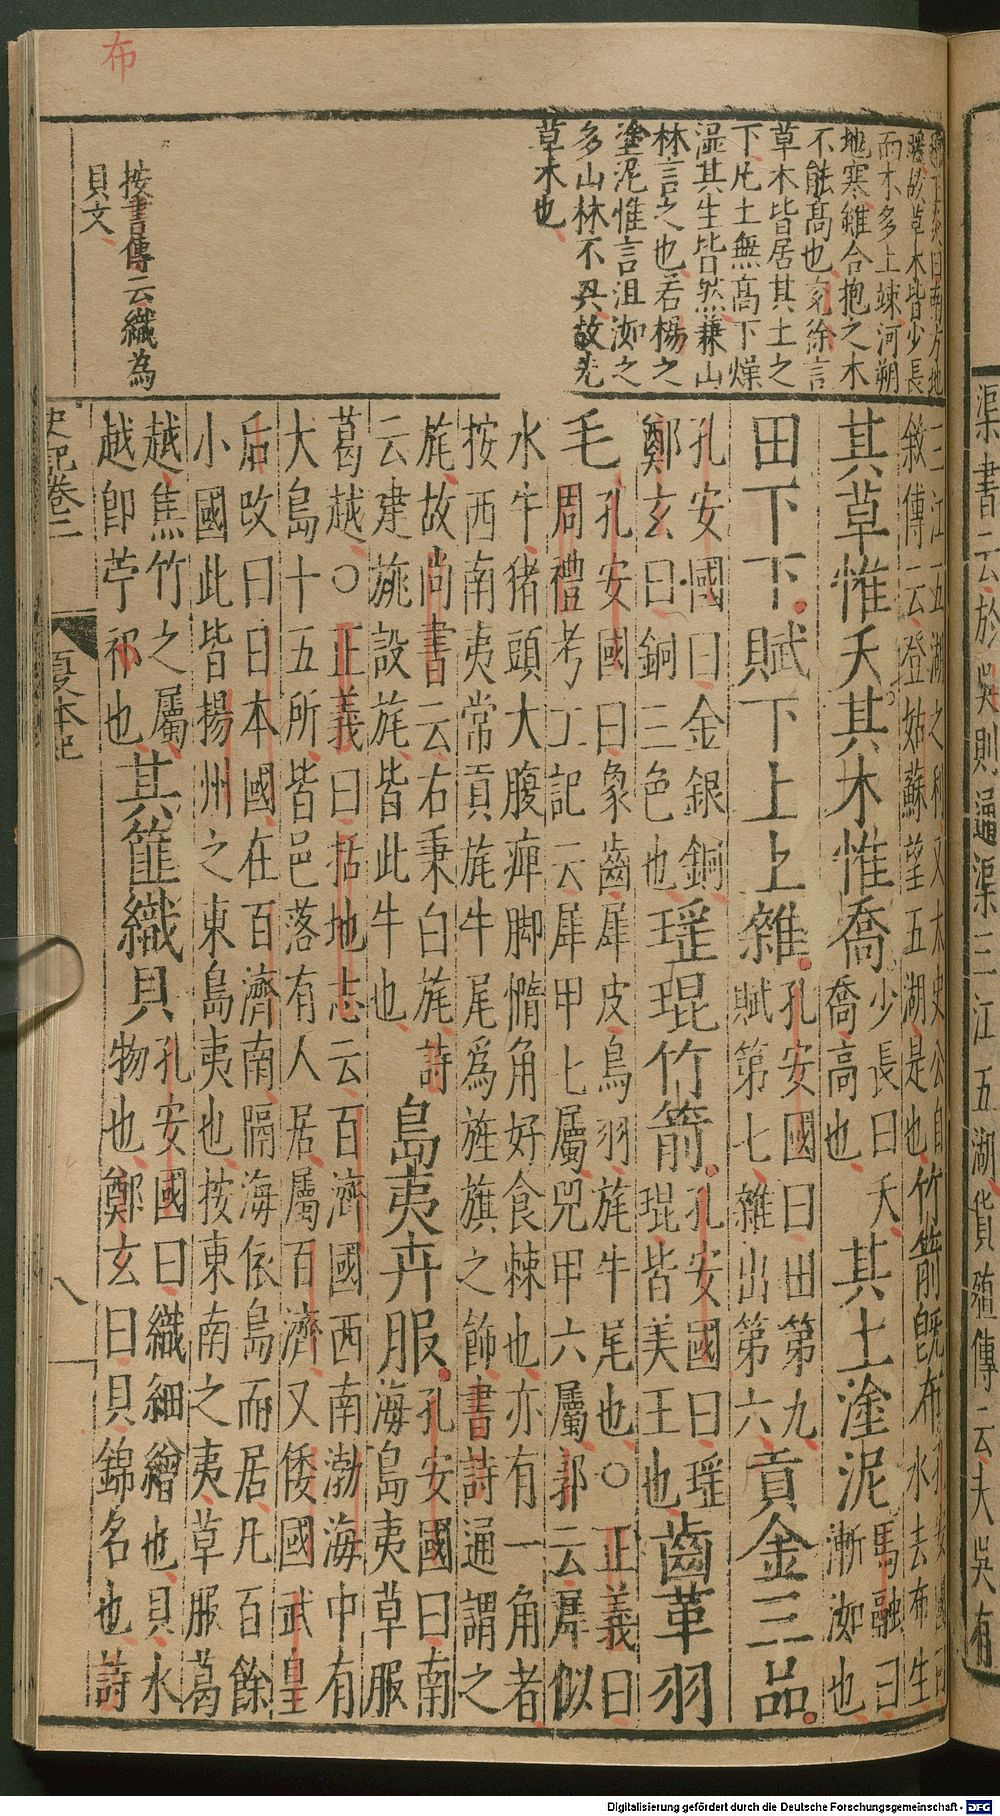 布
渠書云於吳則通渠三江五湖貨殖傳云夫吳有
曰南方地
暖故草木皆少長
而木多上竦河朔
地寒雖合抱之木
不能高也亥徐言
草木皆居其土之
下凡土無高下燥
濕其生皆然兼山
林言之也若楊之
塗泥惟言沮洳之
多山林不與故先
草木也
按書傳云織為
貝文
三江五湖之利又太史公自
敘傳云登姑蘇望五湖是也
竹箭既布
孔安國曰
水去布生
其草惟夭其木惟喬
少長曰夭
喬高也
其土塗泥
馬融曰
漸洳也
田下下賦下上上雜
孔安國曰田第九
賦第七雜出第六
貢金三品
孔安國曰金銀銅
鄭玄曰銅三色也
瑤琨竹箭
孔安國曰瑤
琨皆美玉也
齒革羽
毛
孔安國曰象齒犀皮鳥羽旄牛尾也○正義曰
周禮考工記云犀甲七屬兕甲六屬郭云犀似
水牛猪頭大腹痺脚惰角好食棘也亦有一角者
按西南夷常貢旄牛尾爲旌旗之飾書詩通謂之
旄故尚書云右秉白旄詩
云建旐設旄皆此牛也
島夷卉服
孔安國曰南
海島夷草服
葛越○正義曰括地志云百濟國西南渤海中有
大島十五所皆邑落有人居屬百濟又倭國武皇
后改曰日本國在百濟南隔海依島而居凡百餘
小國此皆揚州之東島夷也按東南之夷草服葛
越焦竹之屬
越即苧祁也
其篚織貝
孔安國曰織細繒也貝水
物也鄭玄曰貝錦名也詩
史記卷二
夏本紀
八
Digitalisierung gefördert durch die Deutsche Forschungsgemeinschaft - DFG